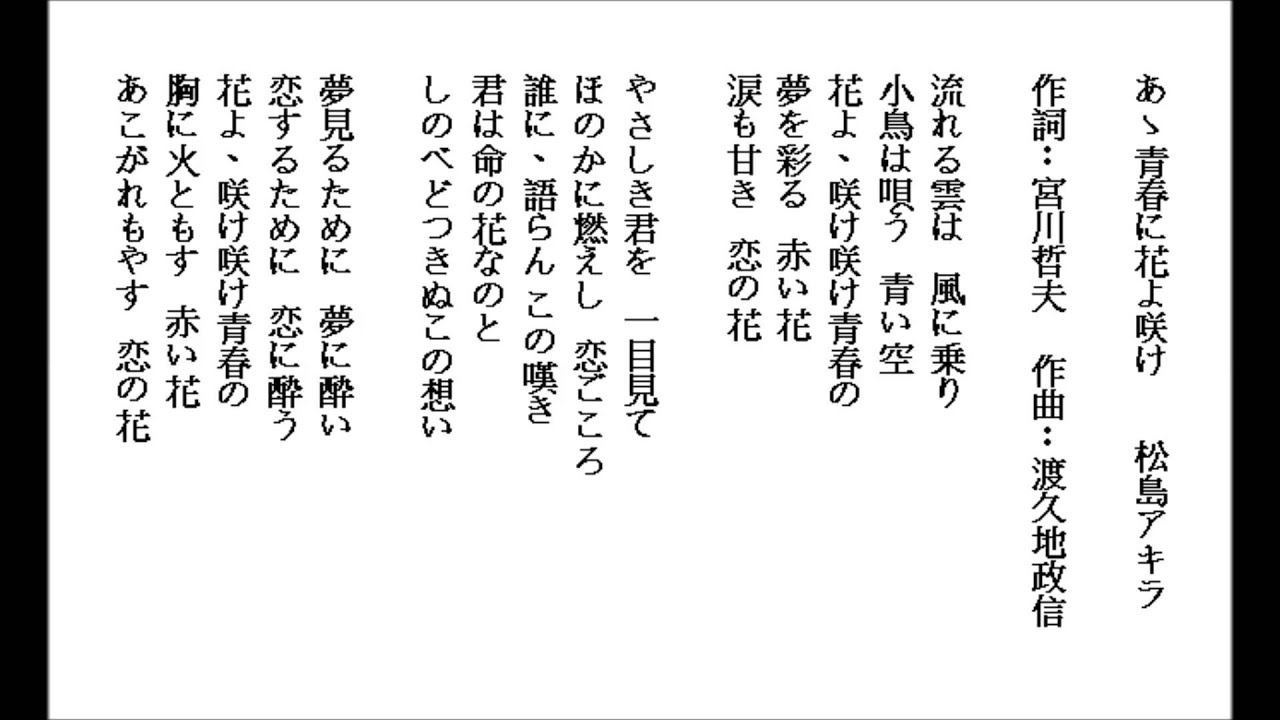 あゝ青春に花よ咲け　　松島アキラ
作詞：宮川哲夫　作曲：渡久地政信
流れる雲は　風に乗り
小鳥は唄う　青い空
花よ、咲け咲け青春の
夢を彩る　赤い花
涙も甘き　恋の花
やさしき君を　一目見て
ほのかに燃えし　恋ごころ
誰に、語らん この嘆き
君は命の花なのと
しのべどつきぬこの想い
夢見るために　夢に酔い
恋するために　恋に酔う
花よ、咲け咲け青春の
胸に火ともす　赤い花
あこがれもやす　恋の花